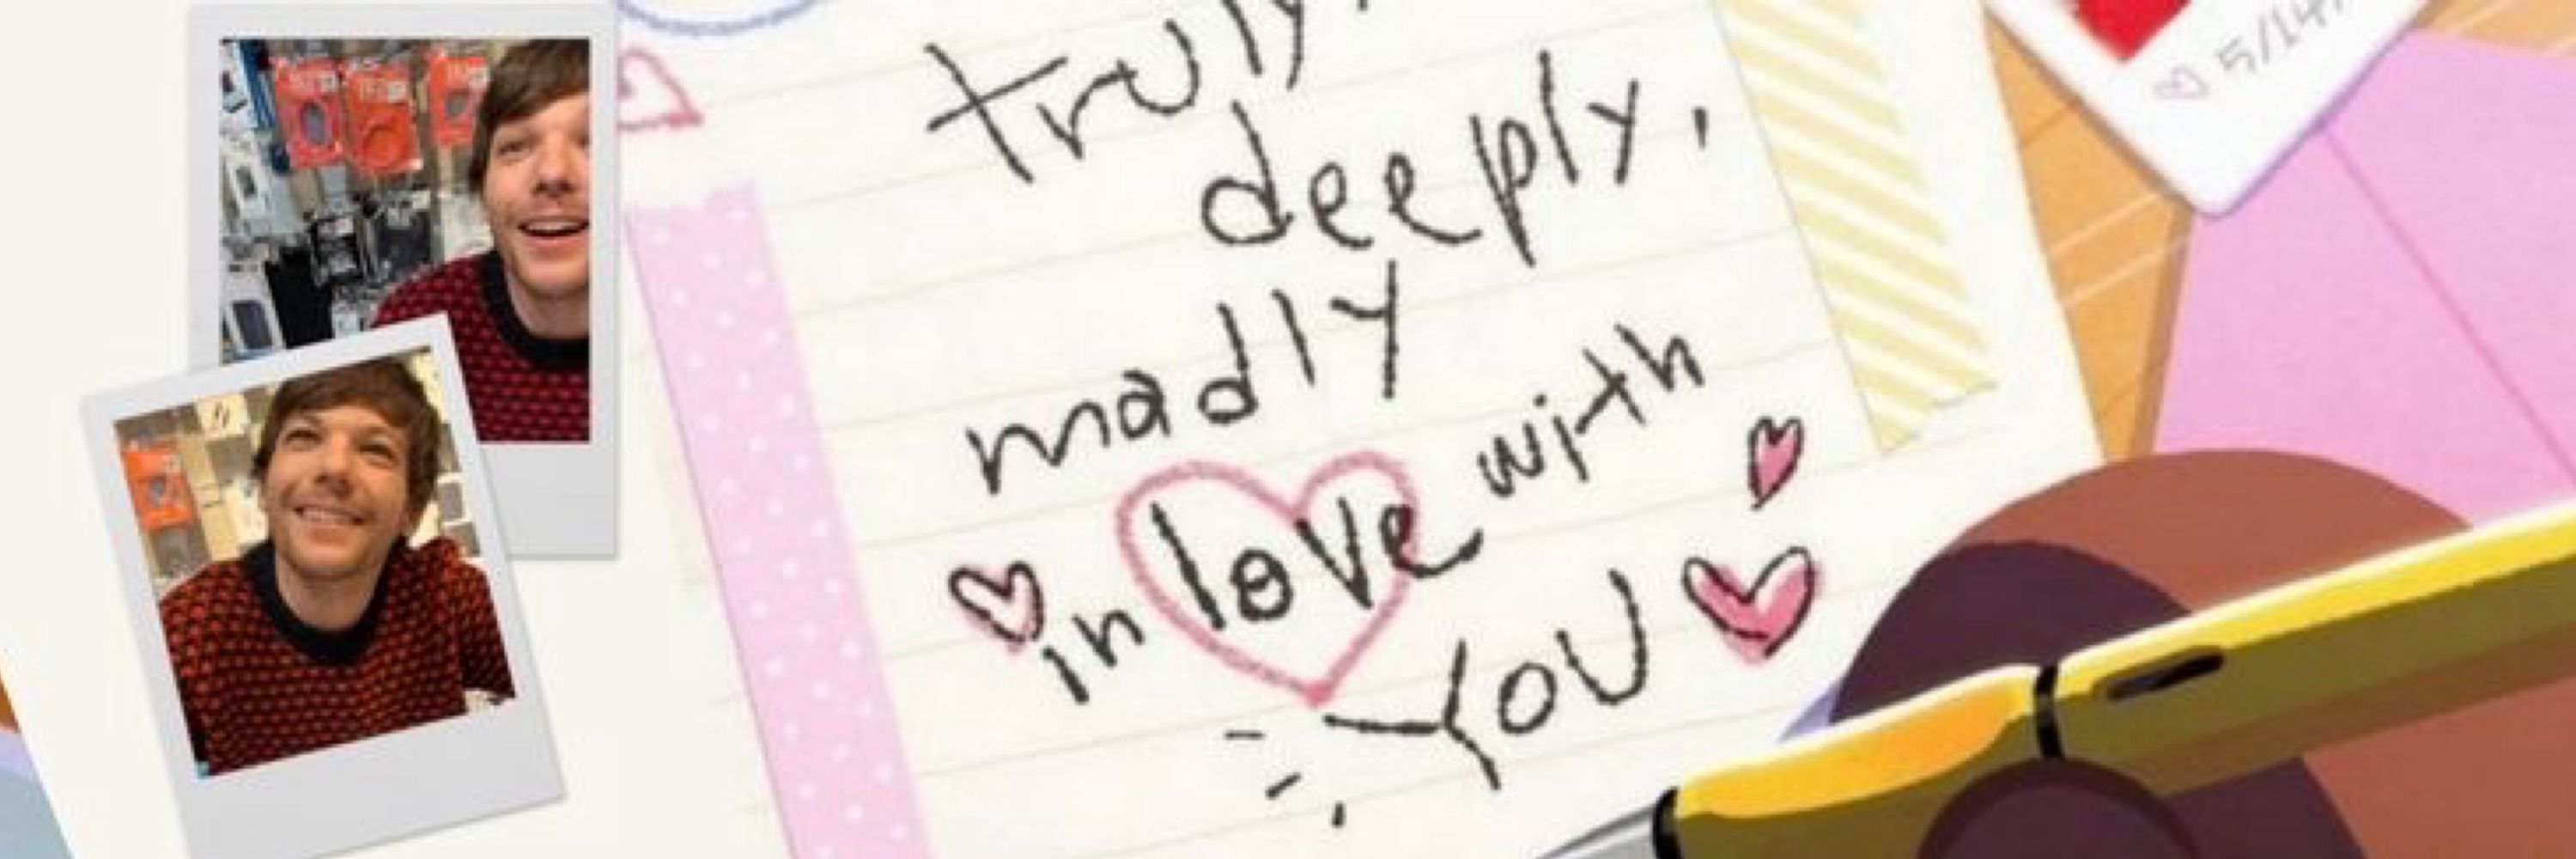 truly,
deeply,
madly
in love with
YOU
5/14/